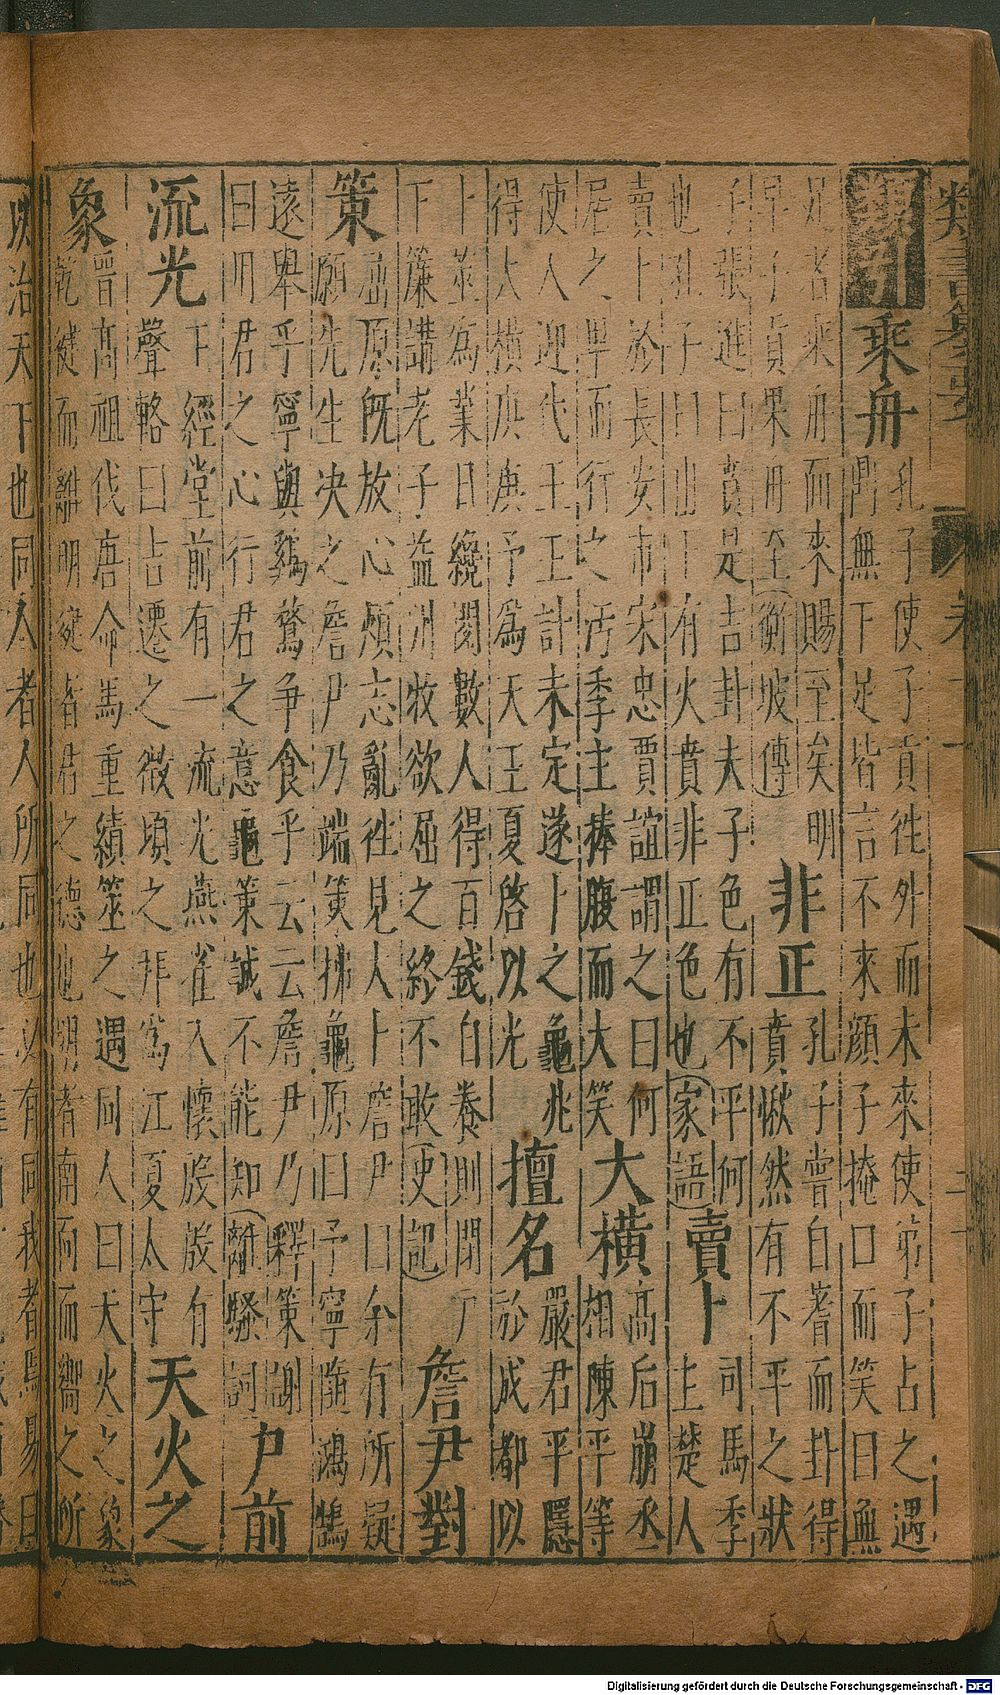 類書纂要 卷十一
乘舟
孔子使子貢往外而未來使弟子占之遇
鼎無下足皆言不來顏子掩口而笑曰無
足者乘舟而來賜至矣明
早子貢果舟至(衡坡傳)
非正
孔子嘗自蓍而卦得
賁愀然有不平之狀
子張進曰賁是吉卦夫子色有不平何
也孔子曰山下有火賁非正色也(家語)
賣卜
司馬季
主楚人
賣卜於長安市宋忠賈誼謂之曰何
居之卑而行之汚季主捧腹而大笑
大橫
高后崩丞
相陳平等
使人迎代王王計未定遂卜之龜兆
得大橫庚庚予爲天王夏啓以光
擅名
嚴君平隱
於成都以
卜筮為業日纔閱數人得百錢自養則閉
下簾講老子益州牧欲屈之終不敢(史記)
詹尹對
策
屈原旣放心煩志亂往見人卜詹尹曰余有所疑
願先生决之詹尹乃端筴拂龜原曰予寧隨鴻鵠
遠舉乎寧與鷄鶩争食乎云云詹尹乃釋策謝
曰用君之心行君之意龜策誠不能知(離騷詞)
戶前
流光
下經堂前有一流光燕雀入懷殷殷有
聲輅曰占遷之微頃之拜爲江夏太守
天火之
象
晉高祖伐唐命馬重績筮之遇同人曰天火之象
乾健而離明健者君之德也明者南面而嚮之所
以治天下也同人者人所同也必有同我者焉易曰
Digitalisierung gefördert durch die Deutsche Forschungsgemeinschaft - DFG